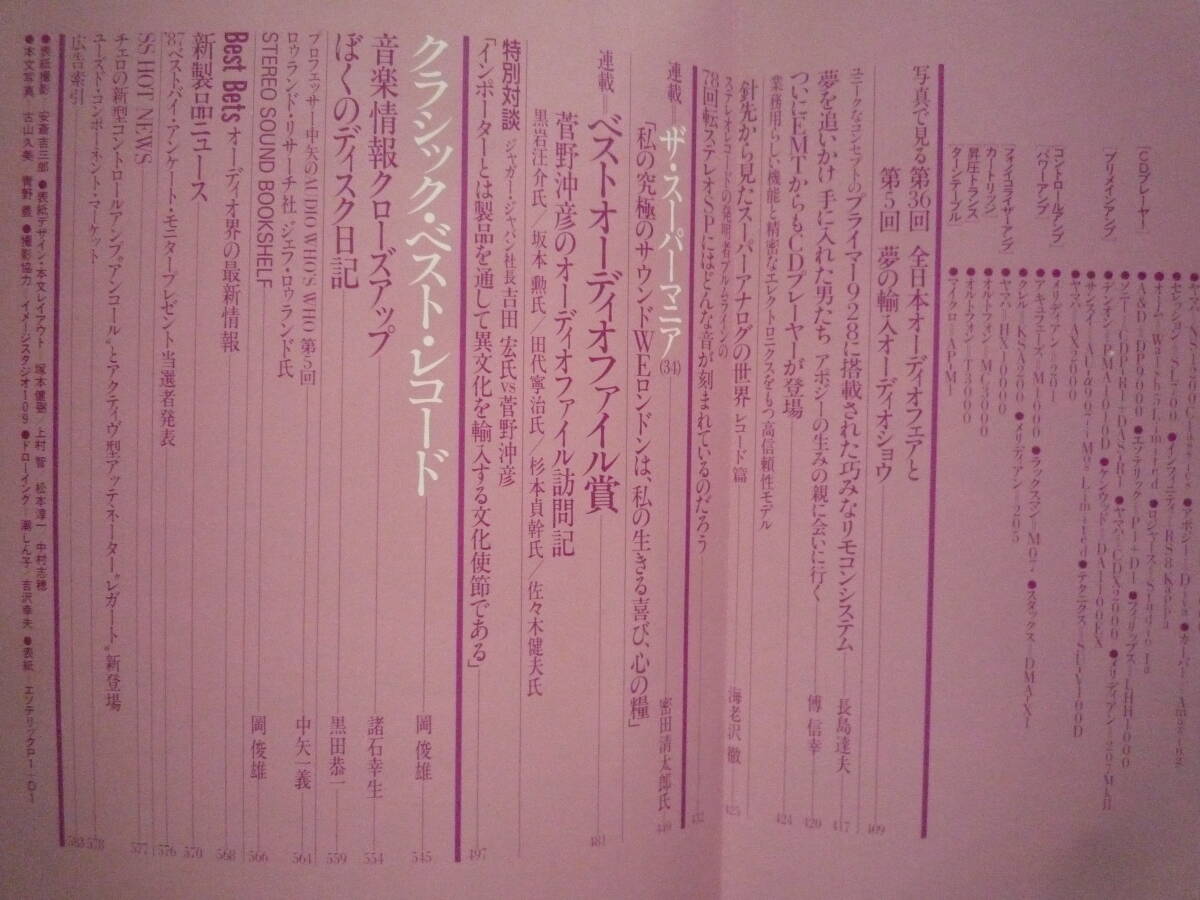 「CDプレーヤー」
●A&D=DP9000 ●エソテリック=P1+D1 ●フィリップス=LHH1000
●ソニー=CDPR1+DASR1 ●ヤマハ=CDX2000 ●メリディアン=207MKII
「プリメインアンプ」
●デンオン=PMA
●ケンウッド=DA1100EX
●サンスイ=AUα907i MOS Limited ●テクニクス=SUV100D
●ヤマハ=AX2000
「コントロールアンプ
パワーアンプ」
●メリディアン=201
●アキュフェーズ=M1000 ●ラックスマン=M07 ●スタックス=DMAX1
●クレル=KSA200 ●メリディアン=205
「フォノイコライザーアンプ
カートリッジ
昇圧トランス
ターンテーブル」
●ヤマハ=HX10000
●オルトフォン=MC3000
●オルトフォン=T3000
●マイクロ=APM1
写真で見る 第36回 全日本オーディオフェアと
第5回 夢の輸入オーディオショウ 409
ユニークなコンセプトのプライマー928に搭載された巧みなリモコンシステム 長島達夫 417
夢を追いかけ 手に入れた男たち アポジーの生みの親に会いに行く 傅 信幸 420
ついにEMTからもCDプレーヤーが登場 424
業務用らしい機能と精密なエレクトロニクスをもつ高信頼性モデル
針先から見たスーパーアナログの世界 レコード篇 海老沢 徹 425
ステレオレコードの発明者ブルムラインの
78回転ステレオSPにはどんな音が刻まれているのだろう 432
連載=ザ・スーパーマニア(34)
「私の究極のサウンドWEロンドンは、私の生きる喜び、心の糧」 密田清太郎氏 449
連載=ベストオーディオファイル賞 481
菅野沖彦のオーディオファイル訪問記
黒岩汪介氏/坂本 勲氏/田代寧治氏/杉本貞幹氏/佐々木健夫氏
特別対談 ジャガー・ジャパン社長 吉田 宏氏vs菅野沖彦
「インポーターとは製品を通して異文化を輸入する文化使節である」 497
クラシック・ベスト・レコード 岡 俊雄 545
音楽情報クローズアップ 諸石幸生 554
ぼくのディスク日記 黒田恭一 559
プロフェッサー中矢のAUDIO WHO'S WHO 第5回
ロゥランド・リサーチ社 ジェフ・ロゥランド氏 中矢一義 564
STEREO SOUND BOOKSHELF 岡 俊雄 566
Best Bets オーディオ界の最新情報 568
新製品ニュース 570
'87ベストバイ・アンケート・モニタープレゼント当選者発表 576
SS HOT NEWS 577
チェロの新型コントロールアンプ“アンコール”とアクティヴ型アッテネーター“レガート”新登場
ユーズド・コンポーネント・マーケット 578
広告索引 583
●表紙撮影 安斎吉三郎 ●表紙デザイン・本文レイアウト 塚本健弼 上村 智 松本淳一 中村志穂
●本文写真 古山久美 青野 豊 ●撮影協力 イメージスタジオ109 ●ドローイング 潮しん子 吉沢幸夫 ●表紙=エソテリックP1+D1